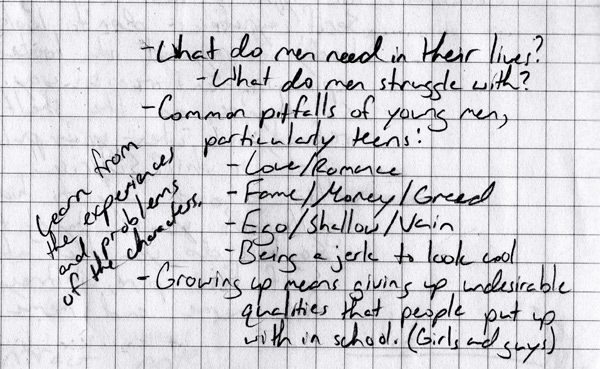 - What do men need in their lives?
- What do men struggle with?
- Common pitfalls of young men,
particularly teens:
- Love/Romance
- Fame/Money/Greed
- Ego/Shallow/Vain
- Being a jerk to look cool
- Growing up means giving up undesirable
qualities that people put up
with in school. (Girls and guys)
Learn from
the experiences
and problems
of the characters.